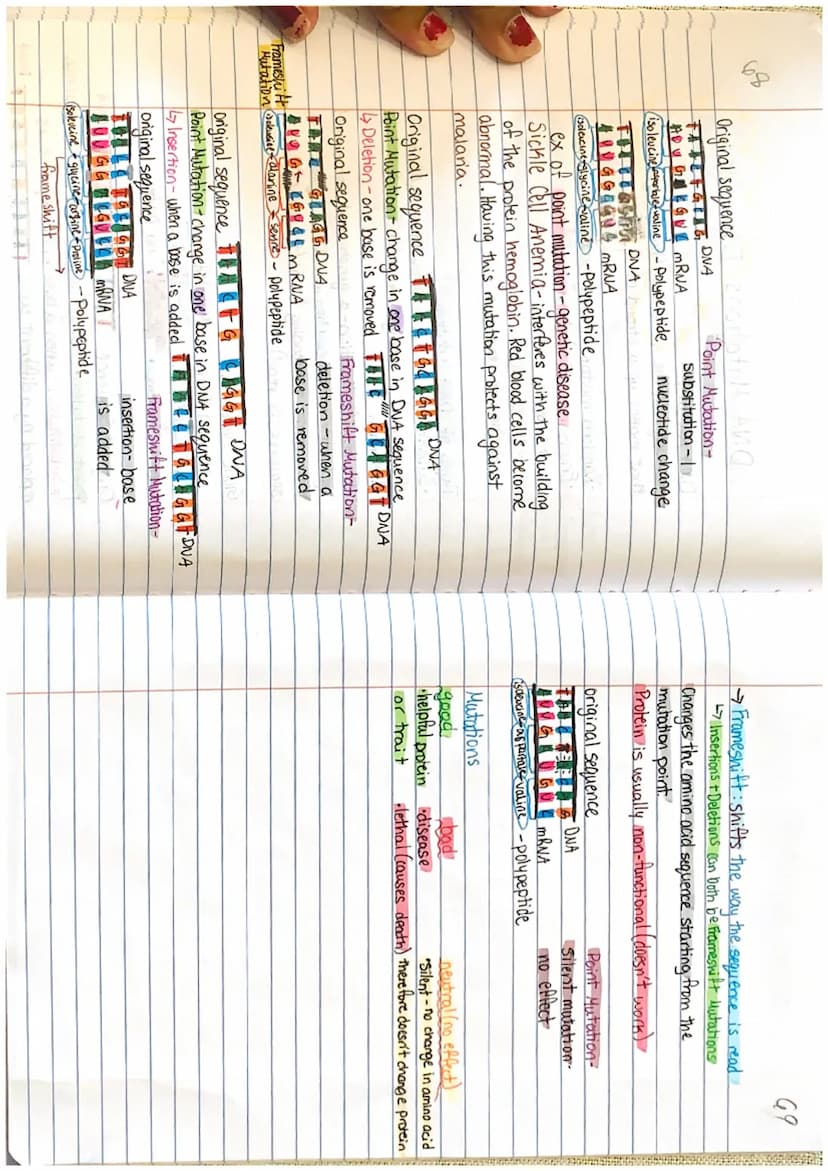 68
Original sequence
DNA
mRNA
isoleucine aspartate valine - Polypeptide
Point Mutation-
substitution - 1
nucleotide change
DNA
mRNA
isoleucine glycine valine - polypeptide
ex of point mutation - genetic disease
Sickle Cell Anemia - interferes with the building
of the protein hemoglobin. Red blood cells become
abnormal. Having this mutation protects against
malaria.
Original sequence TAACTGCAGGT DNA
Point Mutation- change in one base in DNA sequence
↳ Deletion - one base is removed TAAC GCAGGT DNA
Original sequence
DNA
mRNA
- polypeptide
Frameshift
Mutation
Frameshift Mutation-
deletion - when a
base is removed
original sequence TAACTG CAGGT DNA
Point Mutation - change in one base in DNA sequence
↳ Insertion - when a base is added TAACCTGCAGGT DNA
original sequence
DNA
mRNA
isoleucine glycine - Polypeptide
frameshift
Frameshift Mutation-
insertion- base
is added
69
→ Frameshift: shifts the way the sequence is read
↳ Insertions + Deletions can both be Frameshift Mutations
Changes the amino acid sequence starting from the
mutation point
Protein is usually non-functional (doesn't work)
original sequence
DNA
AUUGAUGUC mRNA
isoleucine aspartate valine - polypeptide
Point Mutation-
Silent mutation-
no effect
Mutations
good
•helpful protein
or trait
bad
•disease
•lethal (causes death)
neutral (no effect)
•silent - no change in amino acid
therefore doesn't change protein